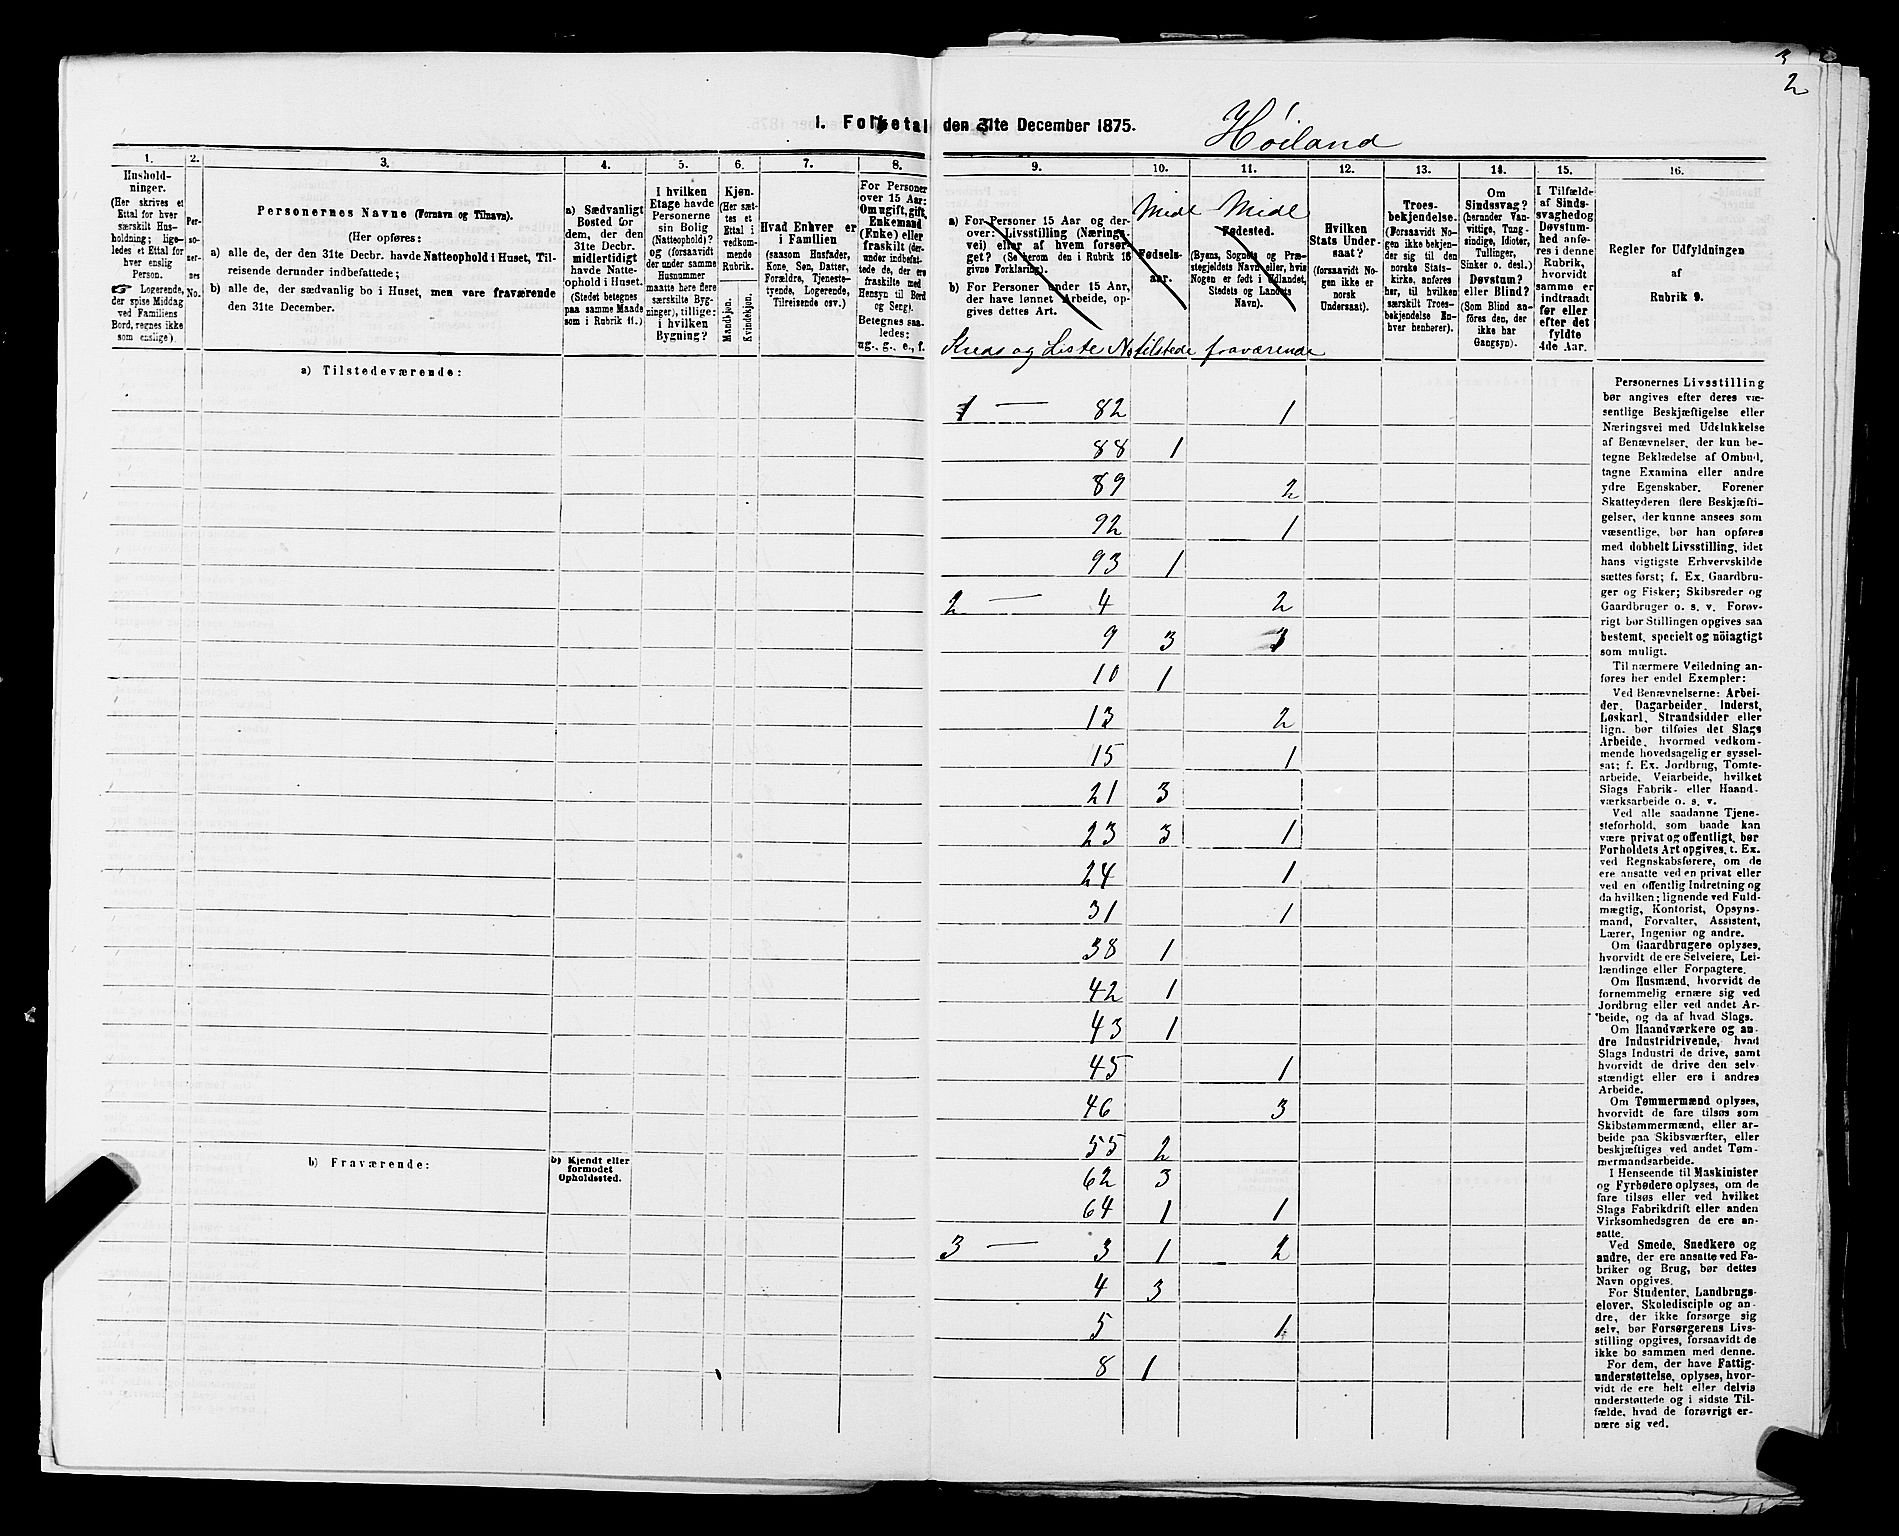 3
2
1. Folketal den 31te December 1875.
Høiland
1.
Hushold-
ninger.
(Her skrives et
Ettal for hver
særskilt Hus-
holdning; lige-
ledes et Ettal for
hver enslig
Person.
☞ Logerende,
der spise Middag
ved Familiens
Bord, regnes ikke
som enslige).
2.
Per-
so-
ner-
nes
No.
3.
Personernes Navne (Fornavn og Tilnavn).
(Her opføres:
a) alle de, der den 31te Decbr. havde Natteophold i Huset, Til-
reisende derunder indbefattede;
b) alle de, der sædvanlig bo i Huset, men vare fraværende
den 31te December.
4.
a) Sædvanligt
Bosted for
dem, der den
31te Decbr.
midlertidigt
havde Natte-
ophold i Huset.
(Stedet betegnes
paa samme Maade
som i Rubrik 11.)
5.
I hvilken
Etage havde
Personerne
sin Bolig
(Natteophold)?
og (forsaavidt
der under samme
Husnummer
maatte høre flere
særskilte Byg-
ninger), tillige:
i hvilken
Bygning?
6.
Kjøn.
(Her sæt-
tes et
Ettal i
vedkom-
mende
Rubrik.
Mandkjøn.
Kvindekjøn.
7.
Hvad Enhver er
i Familien
(saasom Husfader,
Kone, Søn, Datter,
Forældre, Tjeneste-
tyende, Logerende,
Tilreisende osv.)
8.
For Personer
over 15 Aar:
Om ugift, gift,
Enkemand
(Enke) eller
fraskilt (der-
under indbefat-
tede de, der ere
fraskilte med
Hensyn til Bord
og Seng).
Betegnes saa-
ledes:
ug., g., e., f.
9.
a) For Personer 15 Aar og der-
over: Livsstilling (Nærings-
vei) eller af hvem forsør-
get? (Se herom den i Rubrik 16
givne Forklaring).
b) For Personer under 15 Aar,
der have lønnet Arbeide, op-
gives dettes Art.
10.
Midl
Fødsels-
aar.
11.
Midl
Fødested.
(Byens, Sognets og Præ-
stegjeldets Navn eller, hvis
Nogen er født i Udlandet,
Stedets og Landets
Navn).
12.
Hvilken
Stats Under-
saat?
(forsaavidt No-
gen ikke er
norsk
Undersaat).
13.
Troes-
bekjendelse.
(Forsaavidt No-
gen ikke bekjen-
der sig til den
norske Stats-
kirke, anføres
her, til hvilket
særskilt Troes-
bekjendelse En-
hver henhører).
14.
Om
Sindssvag?
(herunder Van-
vittige, Tung-
sindige, Idioter,
Tullinger,
Sinker o. desl.)
Døvstum?
eller Blind?
(Som Blind an-
føres den, der
ikke har
Gangsyn).
15.
I Tilfælde
af Sinds-
svaghed og
Døvstum-
hed anfø-
res i denne
Rubrik,
hvorvidt
samme er
indtraadt
før eller
efter det
fyldte
4de Aar.
16.
Regler for Udfyldningen
af
Rubrik 9.
Kreds og Liste No tilstede fraværende
a) Tilstedeværende:
1 — 82 1
88 1
89 2
92 1
93 1
2 — 4 2
9 3
10 1
13 2
15 1
21 3
23 3 1
24 1
31 1
38 1
42 1
43 1
45 1
46 3
55 2
62 3
64 1 1
3 — 3 1 2
4 3
5 1
8 1
b) Fraværende:
b) Kjendt eller
formodet
Opholdssted.
Personernes Livsstilling
bør angives efter deres væ-
sentlige Beskjæftigelse eller
Næringsvei med Udelukkelse
af Benævnelser, der kun be-
tegne Beklædelse af Ombud,
tagne Examina eller andre
ydre Egenskaber. Forener
Skatteyderen flere Beskjæfti-
gelser, der kunne ansees som
væsentlige, bør han opføres
med dobbelt Livsstilling, idet
hans vigtigste Erhvervskilde
sættes først; f. Ex. Gaardbru-
ger og Fisker; Skibsreder og
Gaardbruger o. s. v. Forøv-
rigt bør Stillingen opgives saa
bestemt, specielt og nøiagtigt
som muligt.
Til nærmere Veiledning an-
føres her endel Exempler:
Ved Benævnelserne: Arbei-
der, Dagarbeider, Inderst,
Løskarl, Strandsidder eller
lign. bør tilføies det Slags
Arbeide, hvormed vedkom-
mende hovedsagelig er syssel-
sat; f. Ex. Jordbrug, Tomte-
arbeide, Veiarbeide, hvilket
Slags Fabrik- eller Haand-
værksarbeide o. s. v.
Ved alle saadanne Tjene-
steforhold, som baade kan
være privat og offentligt, bør
Forholdets Art opgives, t. Ex.
ved Regnskabsførere, om de
ere ansatte ved en privat eller
ved en offentlig Indretning og
da hvilken; lignende ved Fuld-
mægtig, Kontorist, Opsyns-
mand, Forvalter, Assistent,
Lærer, Ingeniør og andre.
Om Gaardbrugere oplyses,
hvorvidt de ere Selveiere, Lei-
lændinge eller Forpagtere.
Om Husmænd, hvorvidt de
fornemmelig ernære sig ved
Jordbrug eller ved andet Ar-
beide, og da af hvad Slags.
Om Haandværkere og an-
dre Industridrivende, hvad
Slags Industri de drive, samt
hvorvidt de drive den selv-
stændigt eller ere i andres
Arbeide.
Om Tømmermænd oplyses,
hvorvidt de fare tilsøs som
Skibstømmermænd, eller ar-
beide paa Skibsværfter, eller
beskjæftiges ved andet Tøm-
mermandsarbeide.
I Henseende til Maskinister
og Fyrbødere oplyses, om de
fare tilsøs eller ved hvilket
Slags Fabrikdrift eller anden
Virksomhedsgren de ere an-
satte.
Ved Smede, Snedkere og
andre, der ere ansatte ved Fa-
briker og Brug, bør dettes
Navn opgives.
For Studenter, Landbrugs-
elever, Skoledisciple og an-
dre, der ikke forsørge sig
selv, bør Forsørgerens Livs-
stilling opgives, forsaavidt de
ikke bo sammen med denne.
For dem, der have Fattig-
understøttelse, oplyses, hvor-
vidt de ere helt eller delvis
understøttede og i sidste Til-
fælde, hvad de forøvrigt er-
nære sig ved.